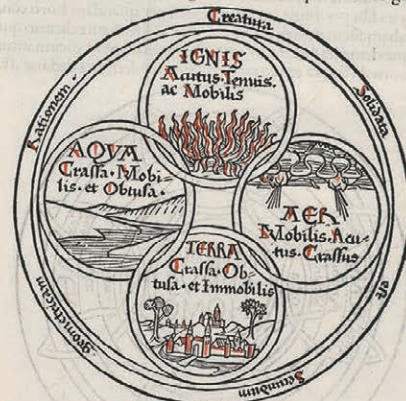 Creatura
Solidata
est
Secundum
geometricam
Rationem
IGNIS
Acutus · Tenuis ·
ac Mobilis
AQVA
Crassa · Mobi-
lis · et Obtusa ·
AER
Mobilis · Acu-
tus · Crassus
TERRA
Crassa · Ob-
tusa · et Immobilis